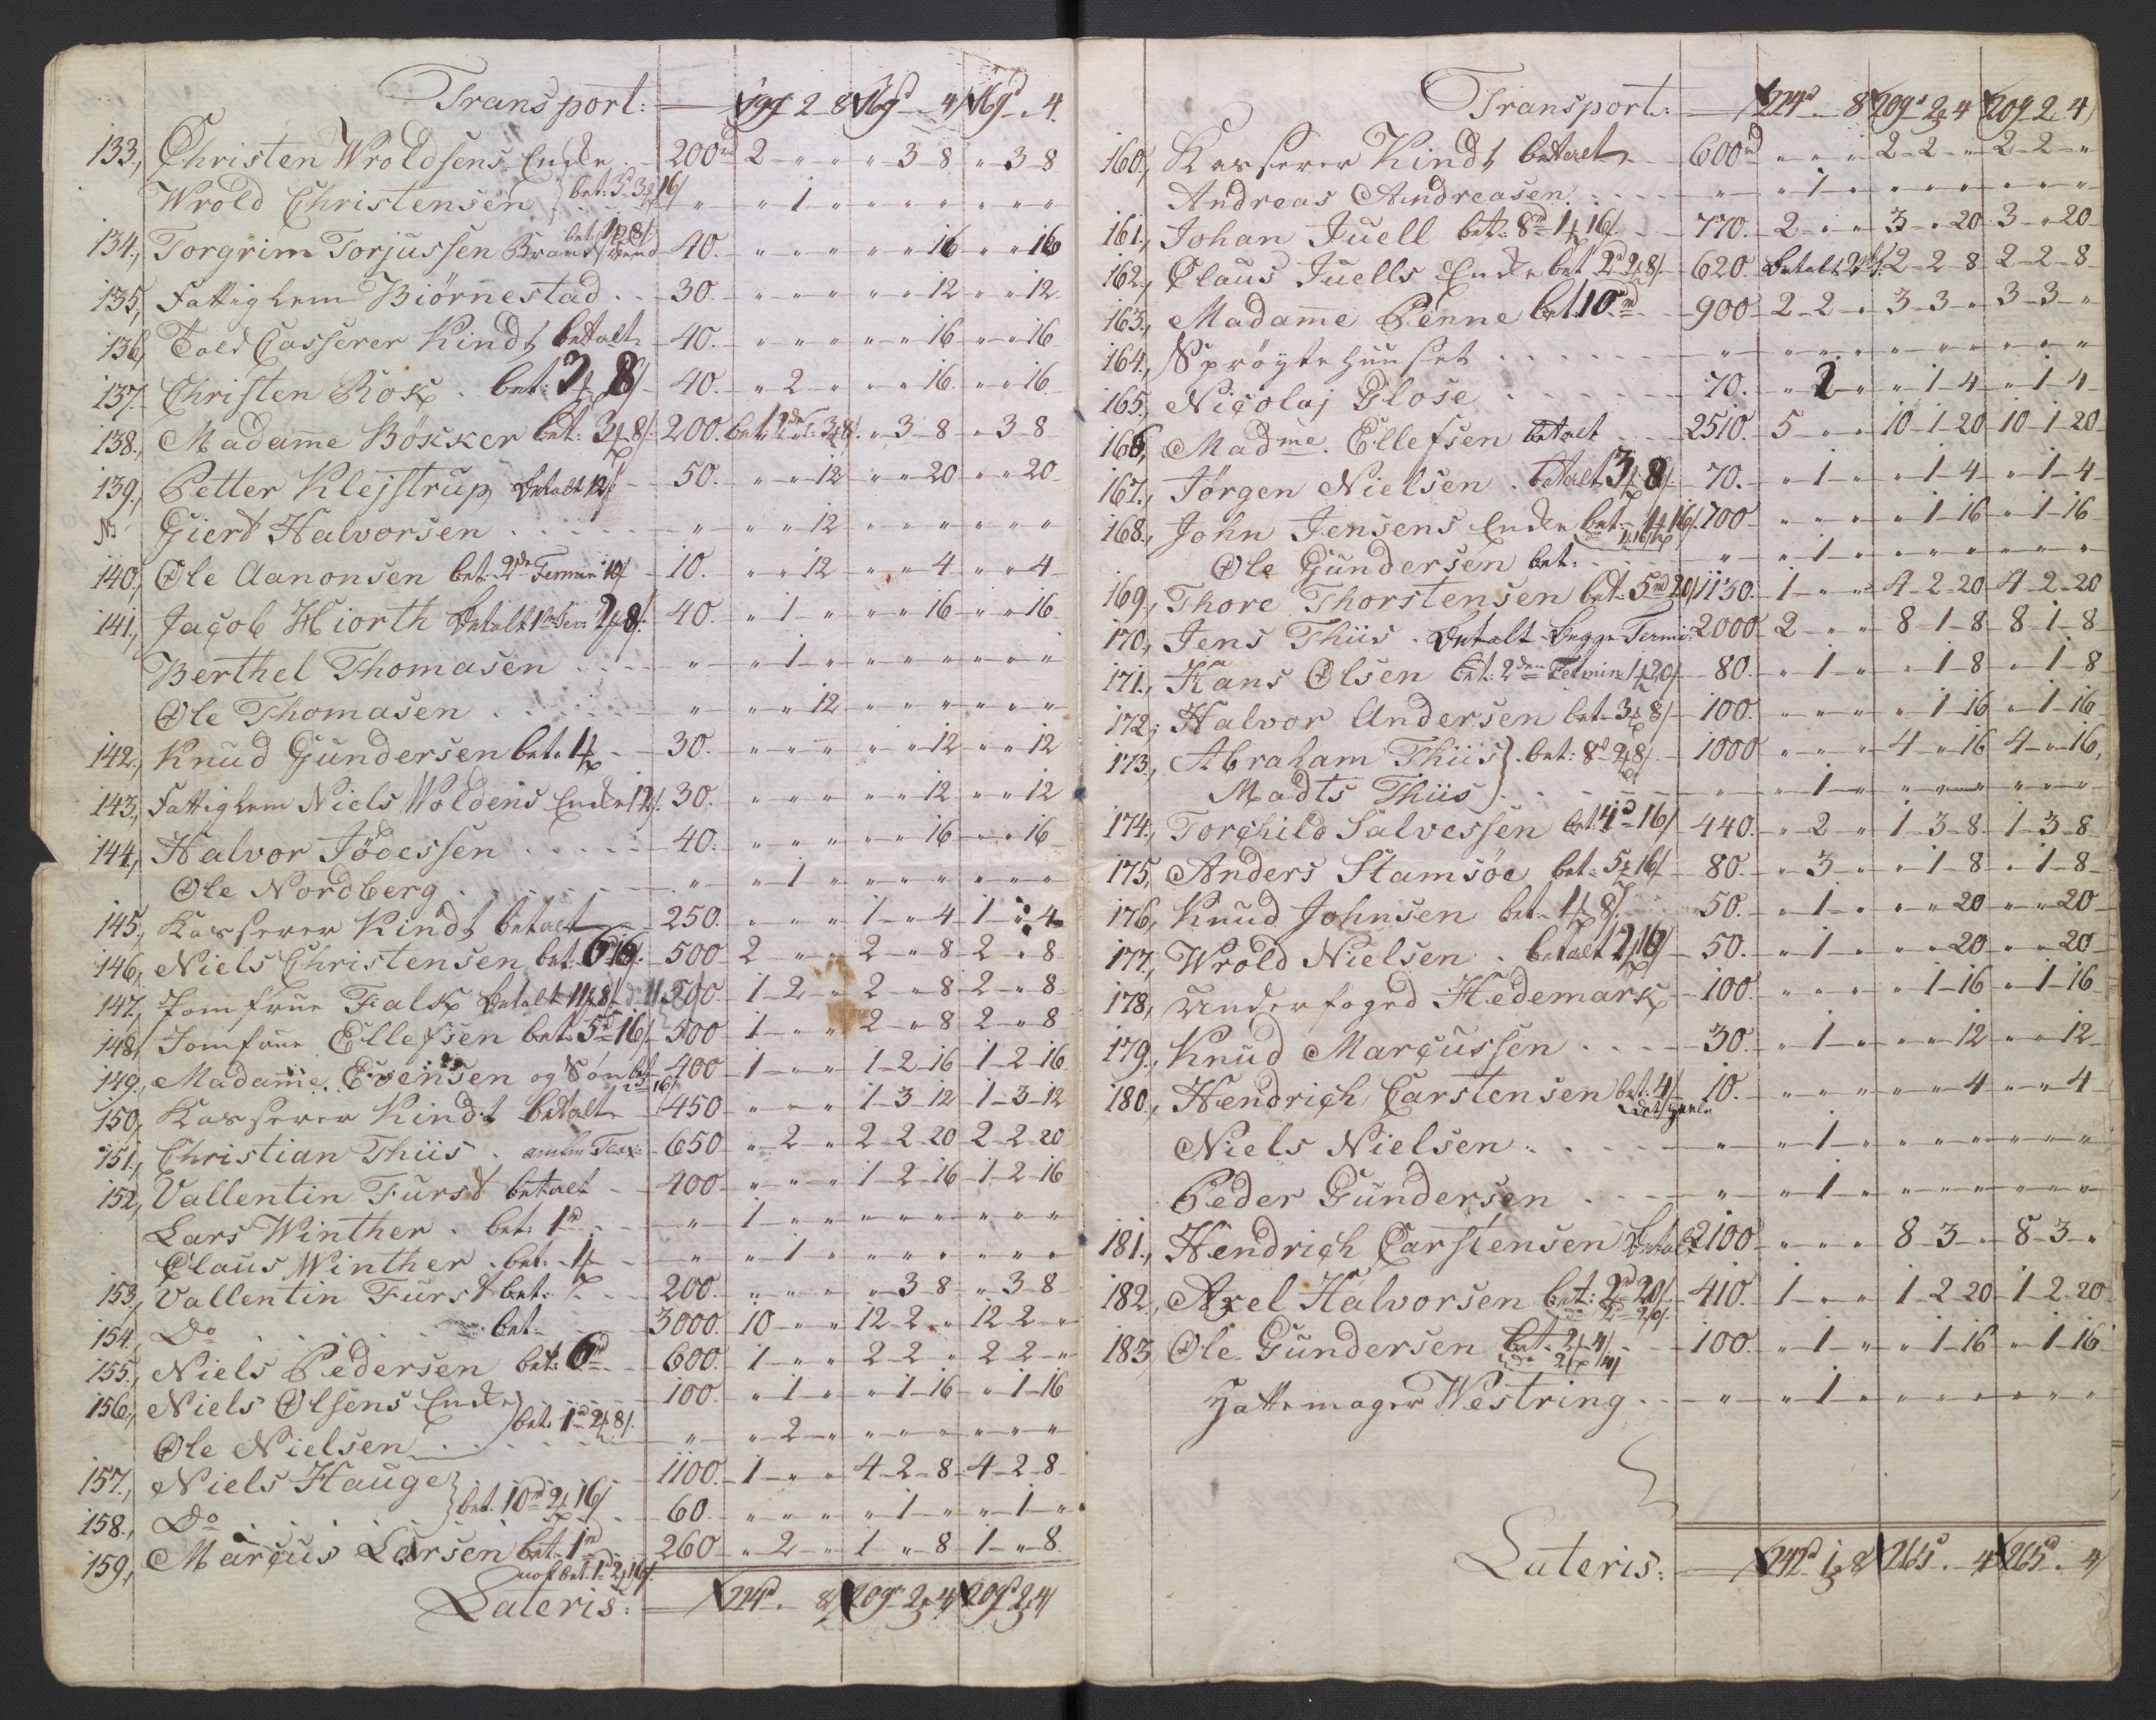 Transport: 197 2 8 169 " 4 169 " 4
133, Christen Wroldsens Enke 200 rd 2 " " " 3 8 " 3 8
Wrold Christensen bet: 3 3 16 " " 1 " " " " " " "
134, Torgrim Torjussen Brandsvend bet: 1 8 40. " " " " " 16 " " 16
135, Fattighem Biörnestad 30. " " " " " 12 " " 12
136, Told Casserer Kindt betalt 40. " " " " " 16 " " 16
137. Christen Rosk bet: 3 8 40. " 2 " " " 16 " " 16
138., Madame Bökker bet: 3 8 200. " 3 8 " 3 8
139., Petter Klejstrup betalt 12 50. " " 12 " " 20 " " 20
N Giert Halvorsen " " " 12 " " " " " "
140, Ole Aanonsen bet: 2de Termin 10. " " 12 " " 4 " " 4
141, Jacob Hiorth betalt 1 8 40. " 1 " " " 16 " " 16
Berthel Thomasen " " 1 " " " " " " "
Ole Thomasen " " " 12 " " " " " "
142, Knud Gundersen bet: 1 30. " " " " " 12 " " 12
143, Fattighem Niels Woldens Enke 12 30. " " " " " 12 " " 12
144, Halvor Jödessen 40. " " " " " 16 " " 16
Ole Nordberg " " 1 " " " " " " "
145, Kasserer Kindt betalt 250. " " " 1 " 4 1 " 4
146, Niels Christensen bet. 6 16 500 2 " " 2 " 8 2 " 8
147, Jomfrue Falsk betalt 500. 1 2 " 2 " 8 2 " 8
148, Jomfrue Ellefsen bet: 5 16 500 1 " " 2 " 8 2 " 8
149., Madame Evensen og Sön bet 400 1 " " 1 2 16 1 2 16
150, Kasserer Kindt betalt 450 " " " 1 3 12 1 3 12
151, Christian Thiis 650 " 2 " 2 2 20 2 2 20
152, Vallentin Furst betalt 400 " " " 1 2 16 1 2 16
Lars Winther bet: 1 " 1 " " " " " " " "
Claus Winther bet: 1 " " 1 " " " " " " "
153, Vallentin Furst bet: 200. " " " " 3 8 " 3 8
154, Do bet. 3000. 10 " " 12 2 " 12 2 "
155., Niels Pedersen bet: 6 600. 1 " " 2 2 " 2 2 "
156, Niels Olsens Enke 100. " 1 " " 1 16 " 1 16
Ole Nielsen bet: 1 2 8 " " 2 " " " " " " "
157, Niels Hauge 1100. 1 " " 4 2 8 4 2 8
158., Do bet. 10 2 16 60. " " " " 1 " " 1 "
159, Marcus Larsen bet. 1 260 " 2 " 1 " 8 1 " 8
Lateris: 224 " 8 209 2 4 209 2 4
Transport: 224 " 8 209 2 4 209 2 4
160., Kasserer Kindt betalt 600 " " " 2 2 " 2 2 "
Andreas Andreasen " " 1 " " " " " " "
161., Johan Juell bet: 8 1 16 770. 2 " " 3 " 20 3 " 20
162., Claus Juells Enke bet 2 2 8 620 betalt 2 2 8 2 2 8
163., Madame Penne bet. 10 900 2 2 " 3 3 " 3 3 "
164., Spröyte Huuset " " " " " " " " " "
165., Nicolaj Glose 70. " 2 " " 1 4 " 1 4
166, Madme. Ellefsen betalt 2510. 5 " " 10 1 20 10 1 20
167., Jörgen Nielsen betalt 3 8 70. " 1 " " 1 4 " 1 4
168., John Jensens Enke bet: 1 16 100 " " " " 1 16 " 1 16
Ole Gundersen bet: " " 1 " " " " " " "
169, Thore Thorstensen bet. 5 20 1130. 1 " " 4 2 20 4 2 20
170, Jens Thiis betalt begge Termi: 2000 2 " " 8 1 8 8 1 8
171., Hans Olsen bet: 2den Termin 1 20 80. " 1 " " 1 8 " 1 8
172, Halvor Andersen bet. 3 8 100. " " " " 1 16 " 1 16
173, Abraham Thiis bet: 8 2 8 1000 " " " 4 " 16 4 " 16
Madts Thiis " " 1 " " " " " " "
174, Torchild Salvessen bet. 4 16 440. " 2 " 1 3 8 1 3 8
175, Anders Stamsöe bet. 5 16 80. " 3 " " 1 8 " 1 8
176, Knud Johnsen bet. 1 8 50. " 1 " " " 20 " " 20
177, Wrold Nielsen betalt 2 16 50. " 1 " " " 20 " " 20
178, Underfoged Hedemark 100. " " " " 1 16 " 1 16
179., Knud Marcussen 30. " 1 " " " 12 " " 12
180., Hendrich Carstensen bet. 4 10. " " " " " 4 " " 4
Niels Nielsen " " 1 " " " " " " "
Peder Gundersen " " 1 " " " " " " "
181., Hendrich Carstensen betalt 2100 " " " 8 3 " 8 3 "
182, Axel Halvorsen bet: 2 20 410. 1 " " 1 2 20 1 2 20
183, Ole Gundersen bet. 2 4 100. " 1 " " 1 16 " 1 16
Hattemager Westring " " 1 " " " " " " "
Lateris: 242 1 8 265 " 4 265 " 4